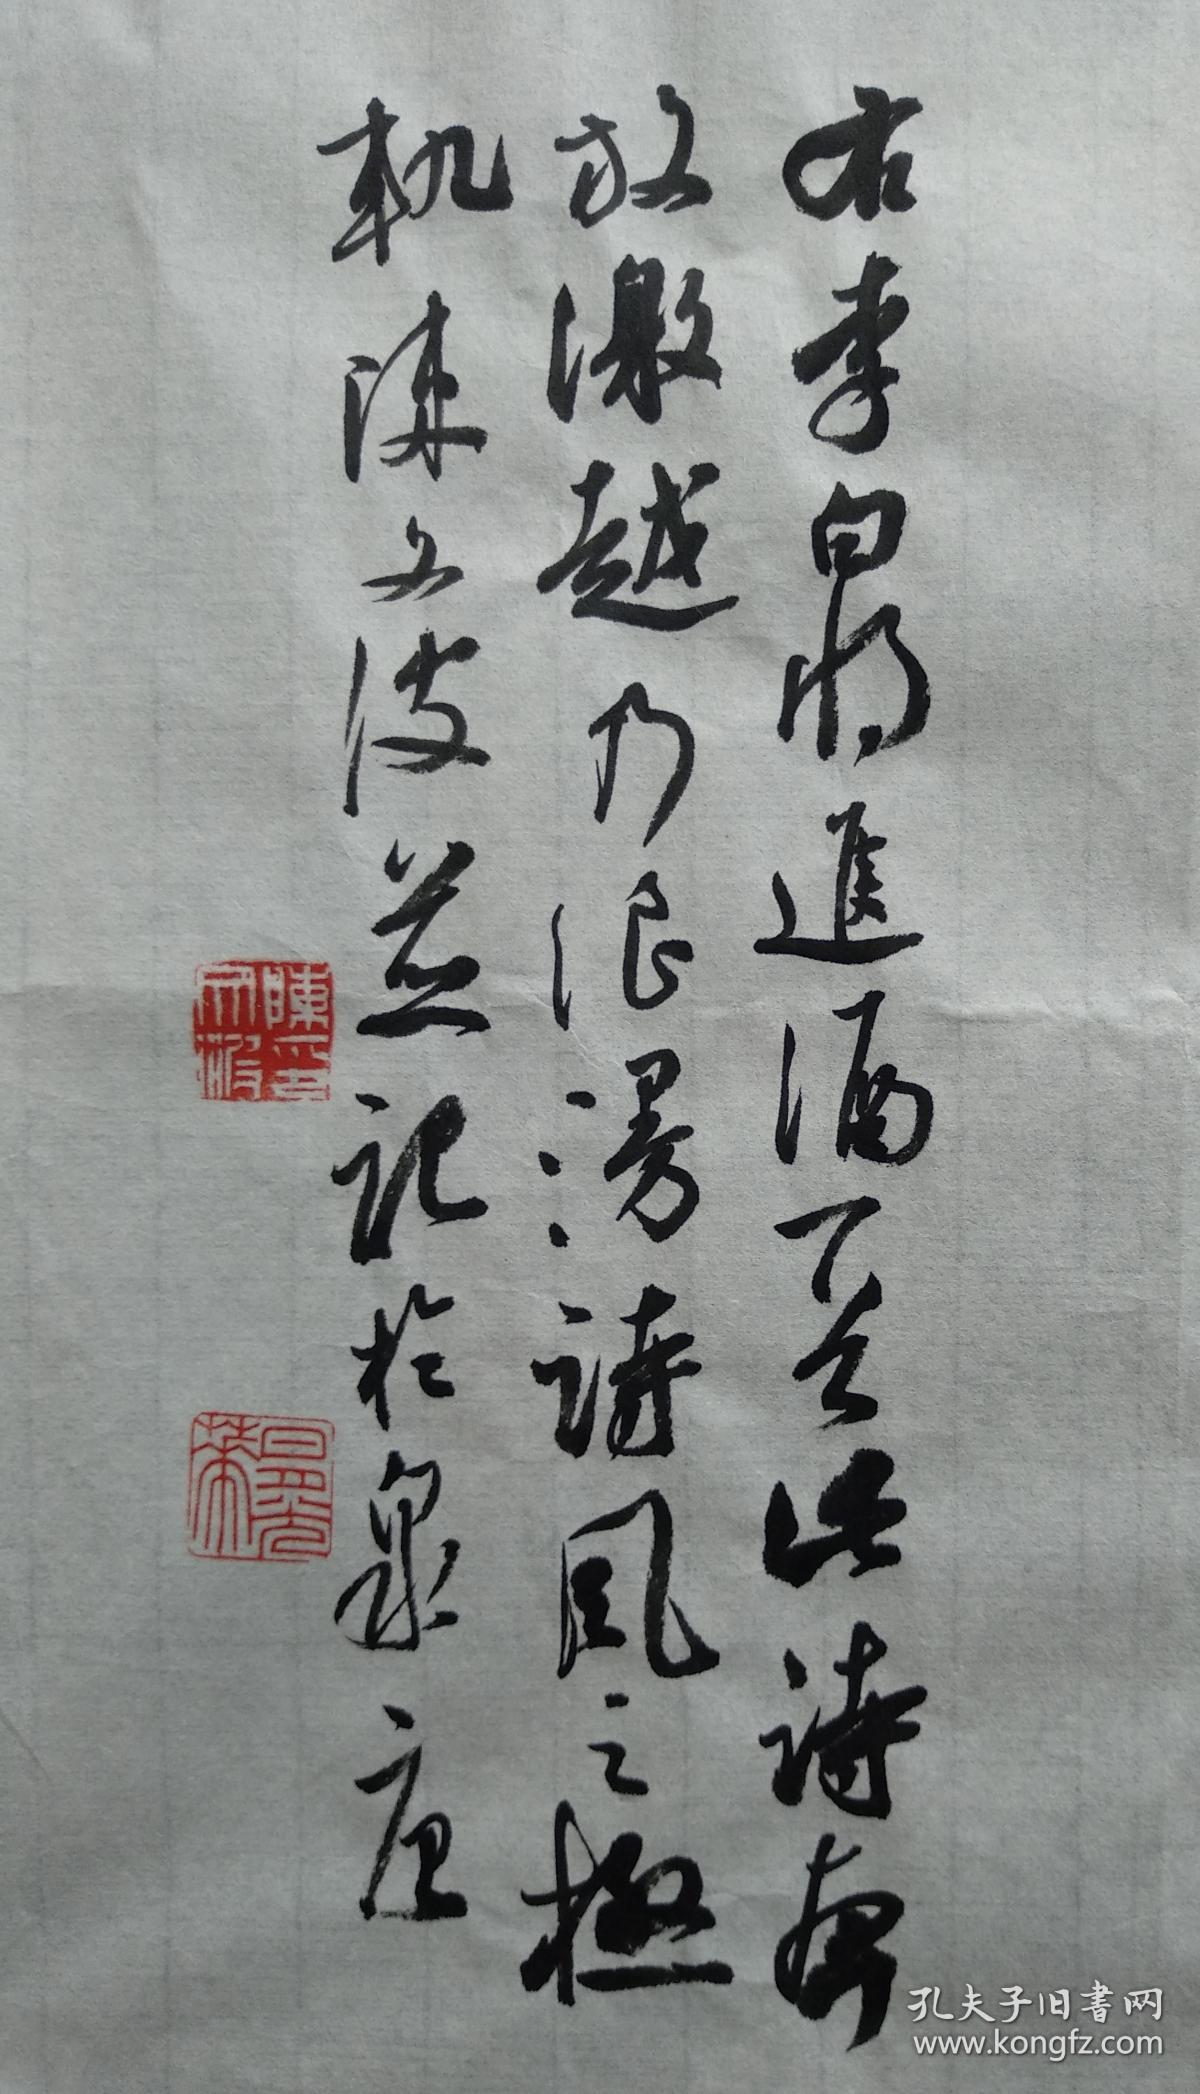 右李白將進酒一首此詩奔
放激越乃浪漫詩風之極
軌陳文波并記於泉唐
孔夫子旧書网
www.kongfz.com